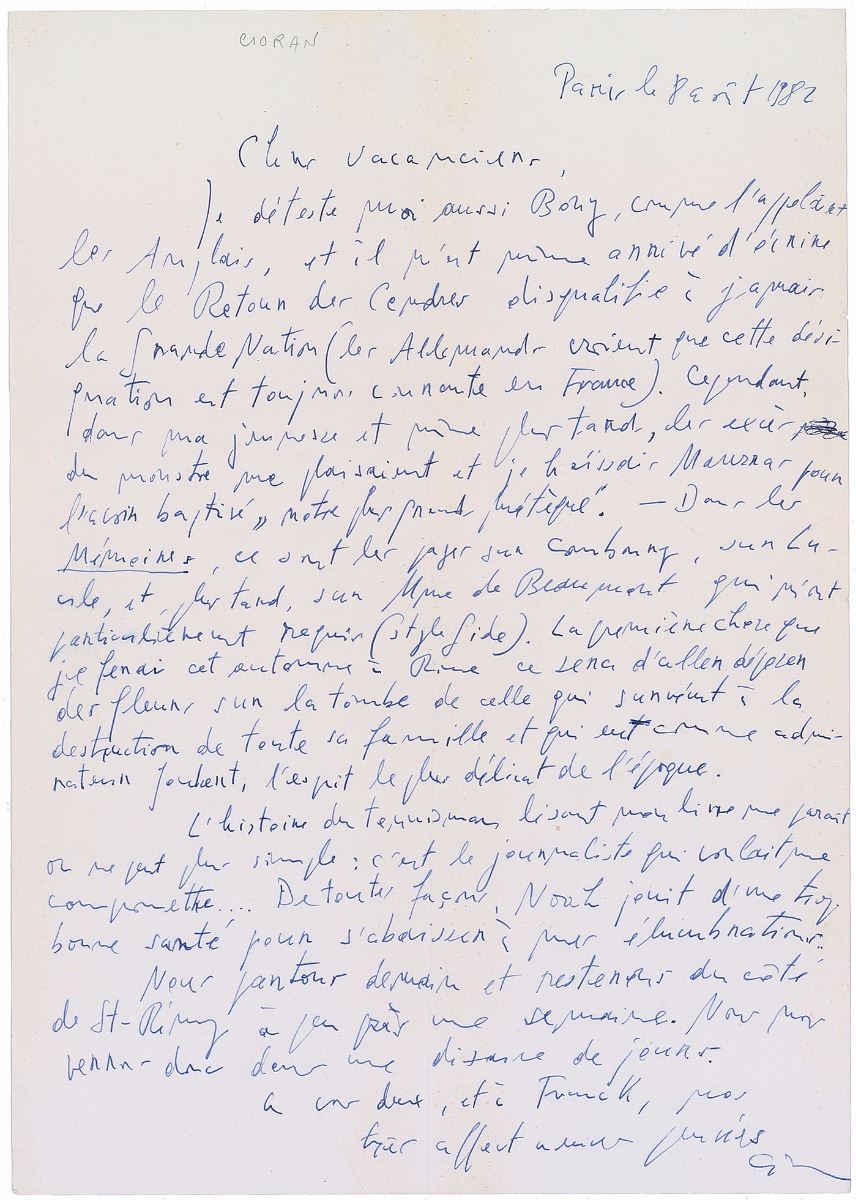 CIORAN
Paris le 8 août 1982
Chers vacanciers,
Je déteste moi aussi Bony, comme l'appelaient
les Anglais, et il m'est même arrivé d'écrire
que le Retour des Cendres disqualifie à jamais
la Grande Nation (les Allemands croient que cette dési-
gnation est toujours courante en France). Cependant,
dans ma jeunesse et même plus tard, les excès
du monstre me plaisaient et je haïssais Maurras pour
l'avoir baptisé „notre plus grand métèque". — Dans les
Mémoires, ce sont les pages sur Combourg, sur Lu-
cile, et, plus tard, sur Mme de Beaumont qui m'ont
particulièrement requis (style Gide). La première chose que
je ferai cet automne à Rome ce sera d'aller déposer
des fleurs sur la tombe de celle qui survécut à la
destruction de toute sa famille et qui eut comme admi-
rateur Joubert, l'esprit le plus délicat de l'époque.
L'histoire du tennisman lisant mon livre me paraît
on ne peut plus simple : c'est le journaliste qui voulait me
compromettre... De toutes façons, Noah jouit d'une trop
bonne santé pour s'abaisser à mes élucubrations.
Nous partons demain et resterons du côté
de St-Rémy à peu près une semaine. Nous nous
verrons donc dans une dizaine de jours.
A vous deux, et à Franck, mes
très affectueuses pensées